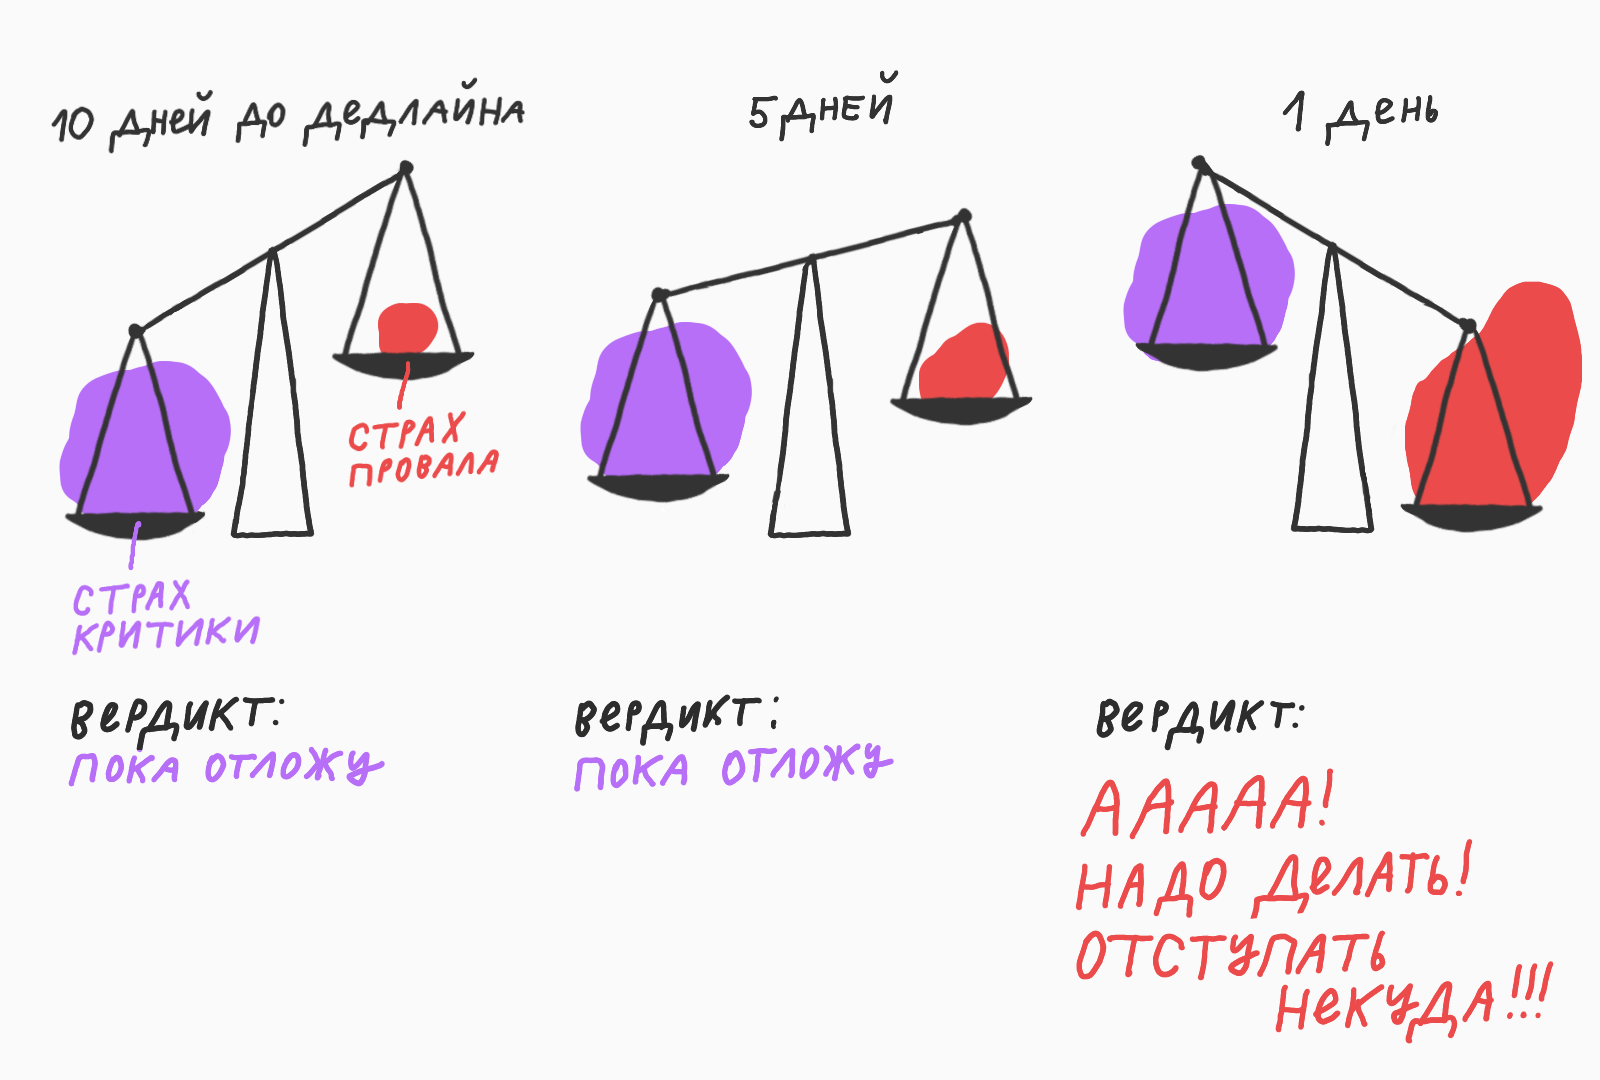 10 дней до дедлайна
5 дней
1 день
СТРАХ
ПРОВАЛА
СТРАХ
КРИТИКИ
вердикт:
ПОКА ОТЛОЖУ
вердикт:
ПОКА ОТЛОЖУ
вердикт:
ААААА!
НАДО ДЕЛАТЬ!
ОТСТУПАТЬ
НЕКУДА!!!